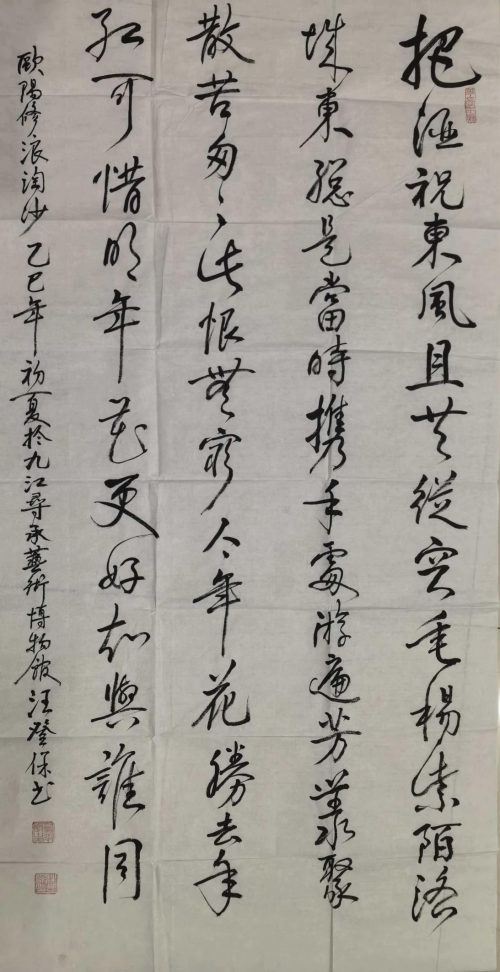 把酒祝東風且共從容垂楊紫陌洛
城東總是當時攜手處游遍芳叢聚
散苦匆々此恨無窮今年花勝去年
紅可惜明年花更好知與誰同
歐陽修浪淘沙乙巳年初夏於九江尋承藝術博物館汪登保书